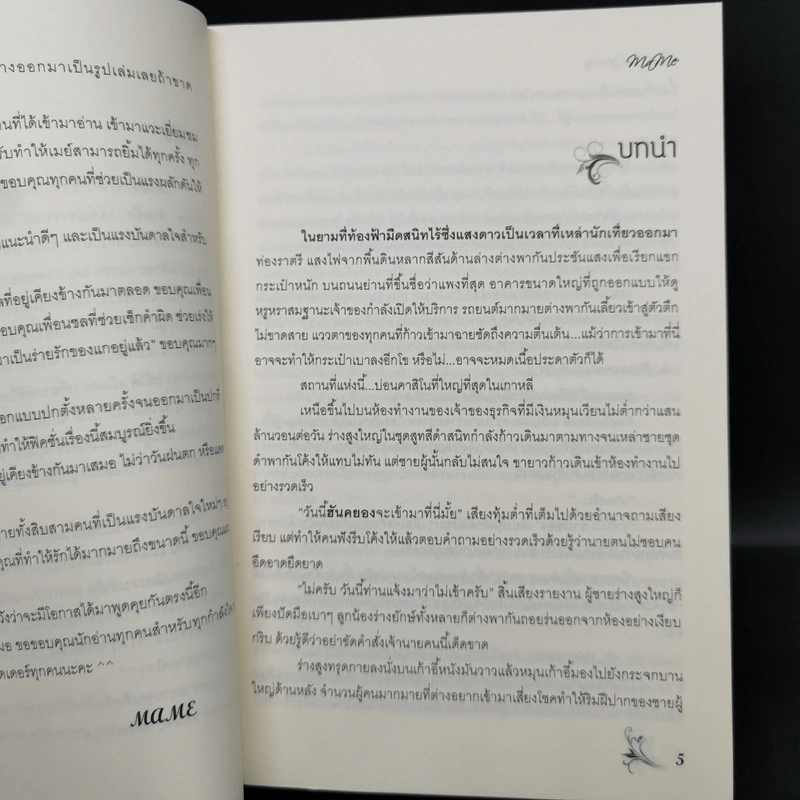 างออกมาเป็นรูปเล่มเลยถ้าขาด
นที่ได้เข้ามาอ่าน เข้ามาแวะเยี่ยมชม
รับทำให้เมย์สามารถยิ้มได้ทุกครั้ง ทุก
ขอบคุณทุกคนที่ช่วยเป็นแรงผลักดันให้
แนะนำดีๆ และเป็นแรงบันดาลใจสำหรับ
ลที่อยู่เคียงข้างกันมาตลอด ขอบคุณเพื่อน
อบคุณเพื่อนซลที่ช่วยเช็กคำผิด ช่วยเร่งให้
มาเป็นร่ายรักของแกอยู่แล้ว" ขอบคุณมากๆ
อกแบบปกตั้งหลายครั้งจนออกมาเป็นปกที่
ทำให้ฟิคชั่นเรื่องนี้สมบูรณ์ยิ่งขึ้น
ยู่เคียงข้างกันมาเสมอ ไม่ว่าวันฝนตก หรือแดด
ายทั้งสิบสามคนที่เป็นแรงบันดาลใจใหม่ๆ
คุณที่ทำให้รักได้มากมายถึงขนาดนี้ ขอบคุณและ
วังว่าจะมีโอกาสได้มาพูดคุยกันตรงนี้อีก
มอ ขอขอบคุณนักอ่านทุกคนสำหรับทุกกำลังใจ
ดเดอร์ทุกคนนะคะ ^^
MAME
MaMe
บทนำ
ในยามที่ท้องฟ้ามืดสนิทไร้ซึ่งแสงดาวเป็นเวลาที่เหล่านักเที่ยวออกมา
ท่องราตรี แสงไฟจากพื้นดินหลากสีสันด้านล่างต่างพากันประชันแสงเพื่อเรียกแขก
กระเป๋าหนัก บนถนนย่านที่ขึ้นชื่อว่าแพงที่สุด อาคารขนาดใหญ่ที่ถูกออกแบบให้ดู
หรูหราสมฐานะเจ้าของกำลังเปิดให้บริการ รถยนต์มากมายต่างพากันเลี้ยวเข้าสู่ตัวตึก
ไม่ขาดสาย แววตาของทุกคนที่ก้าวเข้ามาฉายชัดถึงความตื่นเต้น...แม้ว่าการเข้ามาที่นี่
อาจจะทำให้กระเป๋าเบาลงอีกโข หรือไม่...อาจจะหมดเนื้อประดาตัวก็ได้
สถานที่แห่งนี้...บ่อนคาสิโนที่ใหญ่ที่สุดในเกาหลี
เหนือขึ้นไปบนห้องทำงานของเจ้าของธุรกิจที่มีเงินหมุนเวียนไม่ต่ำกว่าแสน
ล้านวอนต่อวัน ร่างสูงใหญ่ในชุดสูทสีดำสนิทกำลังก้าวเดินมาตามทางจนเหล่าชายชุด
ดำพากันโค้งให้แทบไม่ทัน แต่ชายผู้นั้นกลับไม่สนใจ ขายาวก้าวเดินเข้าห้องทำงานไป
อย่างรวดเร็ว
"วันนี้ฮันคยองจะเข้ามาที่นี่มั้ย" เสียงทุ้มต่ำที่เต็มไปด้วยอำนาจถามเสียง
เรียบ แต่ทำให้คนฟังรีบโค้งให้แล้วตอบคำถามอย่างรวดเร็วด้วยรู้ว่านายตนไม่ชอบคน
อืดอาดยืดยาด
"ไม่ครับ วันนี้ท่านแจ้งมาว่าไม่เข้าครับ" สิ้นเสียงรายงาน ผู้ชายร่างสูงใหญ่ก็
เพียงปัดมือเบาๆ ลูกน้องร่างยักษ์ทั้งหลายก็ต่างพากันถอยร่นออกจากห้องอย่างเงียบ
กริบ ด้วยรู้ดีว่าอย่าขัดคำสั่งเจ้านายคนนี้เด็ดขาด
ร่างสูงทรุดกายลงนั่งบนเก้าอี้หนังมันวาวแล้วหมุนเก้าอี้มองไปยังกระจกบาน
ใหญ่ด้านหลัง จำนวนผู้คนมากมายที่ต่างอยากเข้ามาเสี่ยงโชคทำให้ริมฝีปากของชายผู้
5